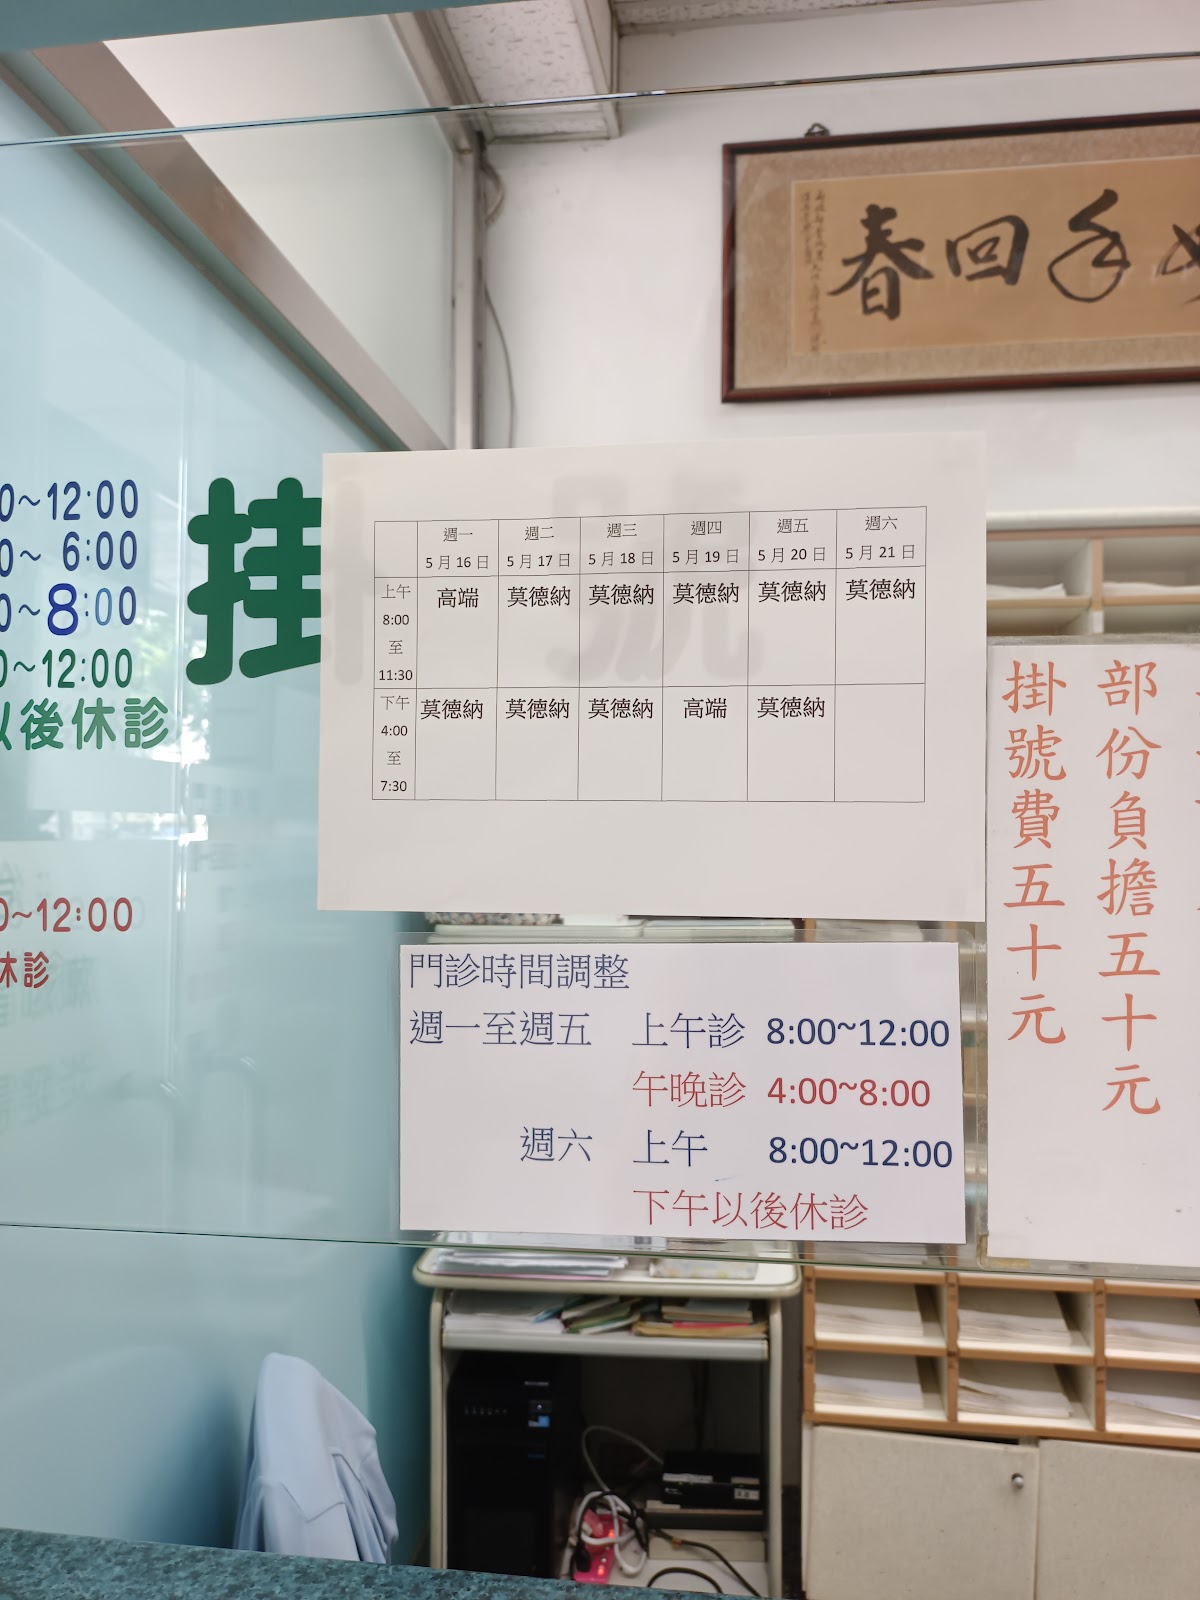 春回手
0~12:00
0~ 6:00
0~8:00
0~12:00
以後休診
掛號
0~12:00
休診
週一 週二 週三 週四 週五 週六
5月16日 5月17日 5月18日 5月19日 5月20日 5月21日
上午 8:00 至 11:30 高端 莫德納 莫德納 莫德納 莫德納 莫德納
下午 4:00 至 7:30 莫德納 莫德納 莫德納 高端 莫德納
部份負擔五十元
掛號費五十元
門診時間調整
週一至週五 上午診 8:00~12:00
午晚診 4:00~8:00
週六 上午 8:00~12:00
下午以後休診